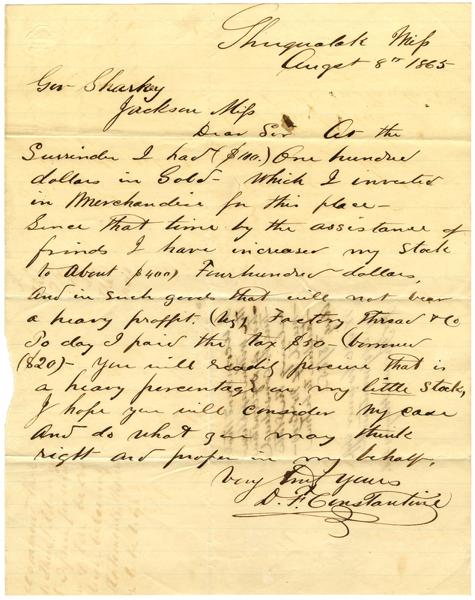 Shuqualak Miss
Augst 8th 1865
Gov Sharkey
Jackson Miss
Dear Sir At the
Surrinder I had ($100.) One hundred
dollars in Gold - Which I invested
in Merchandise for this place -
Since that time by the assistance of
frinds I have increased my Stock
to About $400) Four hundred dollars,
And in such goods that will not bear
a heavy proffit. (Viz, Factory Thread & Co
To day I paid the tax $50 - (borrowed
($20) - You will readily perceive that is
a heavy percentage on my little Stock,
I hope you will consider my case
And do what you may think
right and proper in my behalf,
Very Truly Yours
D. F. Constantine